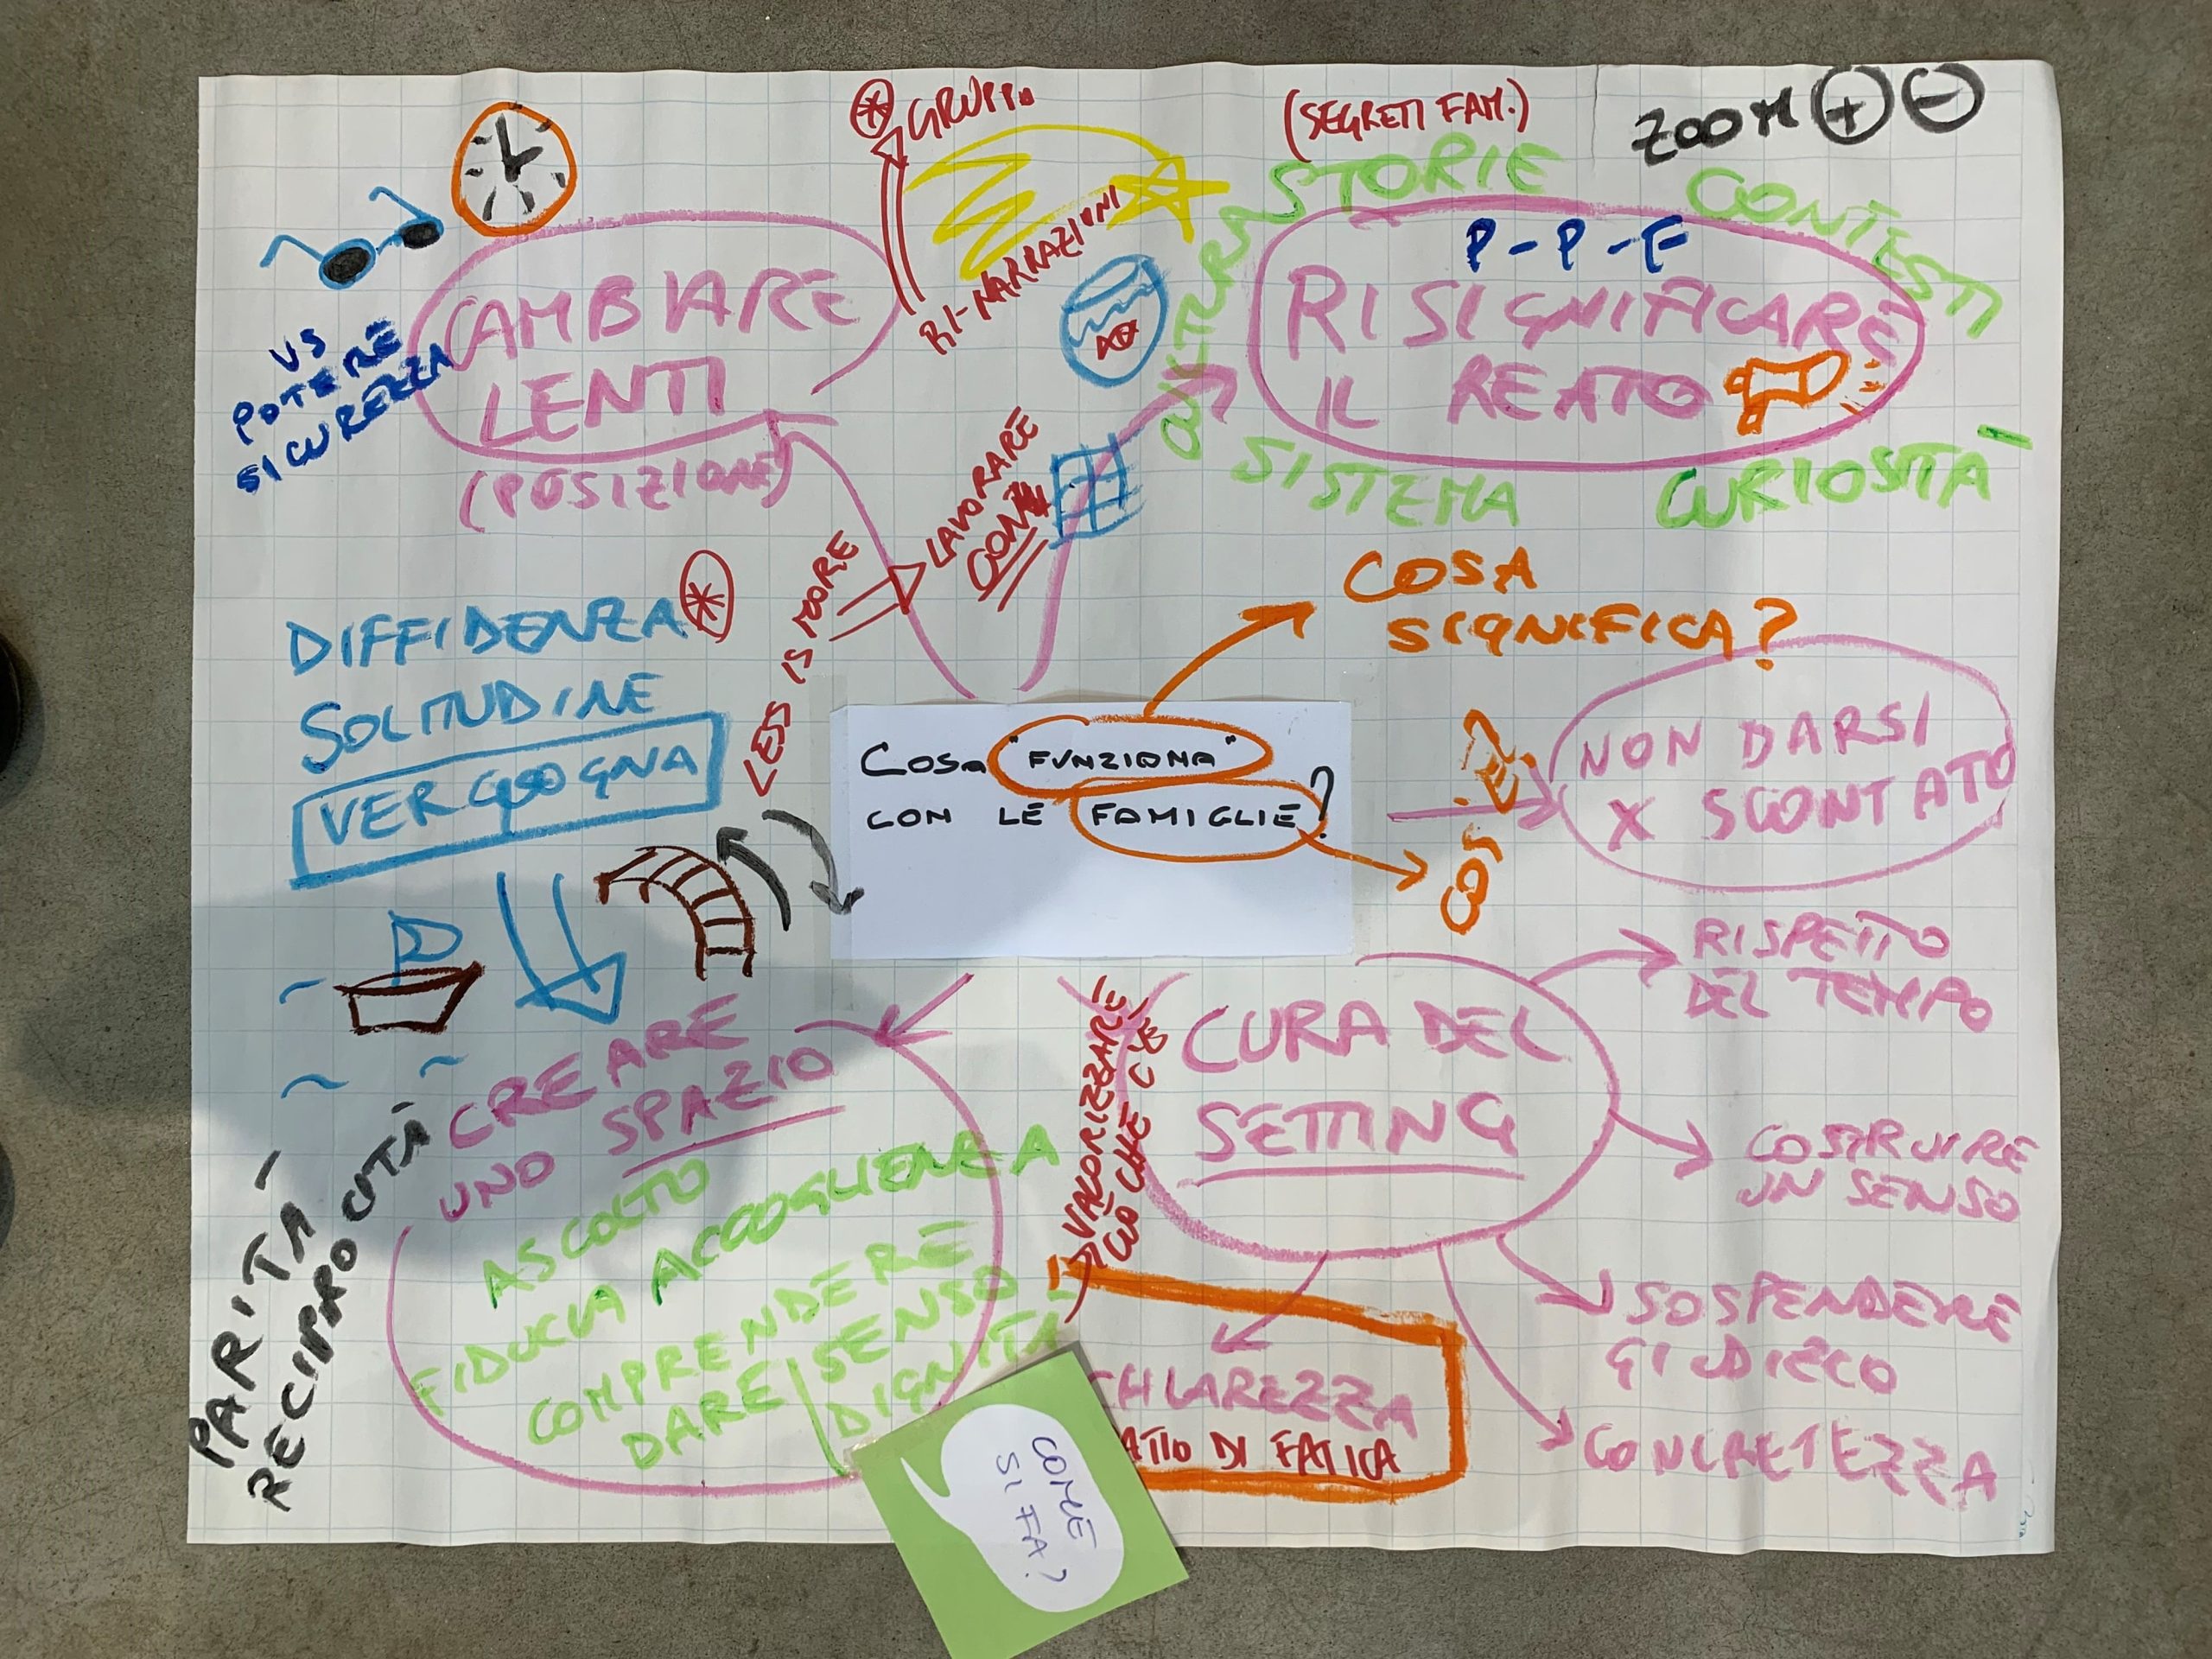 GRUPPO
RI-NARRAZIONI
(SEGRETI FAM.)
ZOOM + -
STORIE
CONTESTI
CULTURA
SISTEMA
CURIOSITÀ
P-P-F
RISIGNIFICARE
IL REATO
CAMBIARE
LENTI
(POSIZIONE)
VS
POTERE
SICUREZZA
LESS IS MORE
LAVORARE
CON
DIFFIDENZA *
SOLITUDINE
VERGOGNA
COSA
SIGNIFICA?
Cosa "FUNZIONA"
CON LE FAMIGLIE?
NON DARSI
X SCONTATO
CURA DEL
SETTING
RISPETTO
DEL TEMPO
COSTRUIRE
UN SENSO
SOSPENDERE
GIUDIZIO
CONCRETEZZA
HIAREZZA
ATTO DI FATICA
VALORIZZARE
CIÒ CHE C'È
CREARE
UNO SPAZIO
ASCOLTO
FIDUCIA ACCOGLIENZA
COMPRENDERE
DARE SENSO
DIGNITÀ
PARITÀ
RECIPROCITÀ
COME
SI FA?